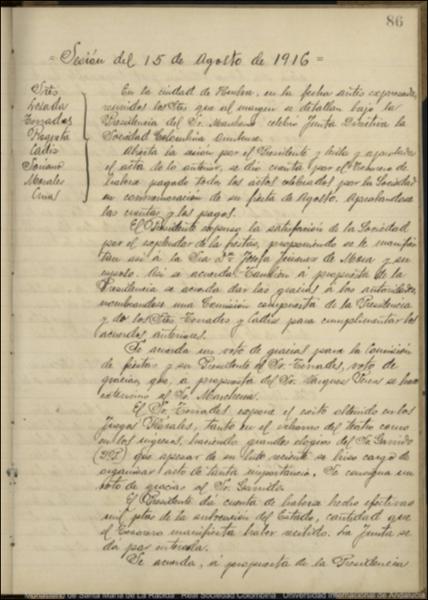 86
= Sesión del 15 de Agosto de 1916 =
Sres
Losada
Terrades
Cádiz
Soriano
Morales
En la ciudad de Huelva, en la fecha antes expresada,
reunidos los Sres que al margen se detallan bajo la
Presidencia del Sr. Marchena celebró Junta Directiva la
Sociedad Colombina Onubense.
Abierta la sesión por el Presidente y leída y aprobada
el acta de la anterior, se dio cuenta por el Tesorero de
haberse pagado todos los actos celebrados por la Sociedad
en conmemoración de su fiesta de Agosto. Aprobándose
las cuentas y los pagos.
El Presidente expuso la satisfacción de la Sociedad
por el esplendor de las fiestas, proponiendo se le manifes-
tara así á la Sra Dª Josefa Jimenez de Mora y su
esposo. Así se acuerda. También á propuesta de la
Presidencia se acuerda dar las gracias á las autoridades
nombrandose una Comisión compuesta de la Presidencia
y de los Sres Terrades y Cádiz para cumplimentar los
acuerdos anteriores.
Se acuerda un voto de gracias para la Comisión
de fiestas y su Presidente el Sr. Terrades, voto de
gracias que, a propuesta del Sr. Marquez se hace
extensivo al Sr. Marchena.
El Sr. Terrades expone el éxito obtenido en los
Juegos Florales, tanto en el adorno del teatro como
en los ingresos, haciendo grandes elogios del Sr. Garrido
que apesar de su luto reciente se hizo cargo de
organizar acto de tanta importancia. Se consigna un
voto de gracias al Sr. Garrido.
El Presidente dá cuenta de haberse hecho efectivas
mil ptas de la subvención del Estado, cantidad que
el Tesorero manifiesta haber recibido. La Junta se
da por enterada.
Se acuerda, á propuesta de la Presidencia